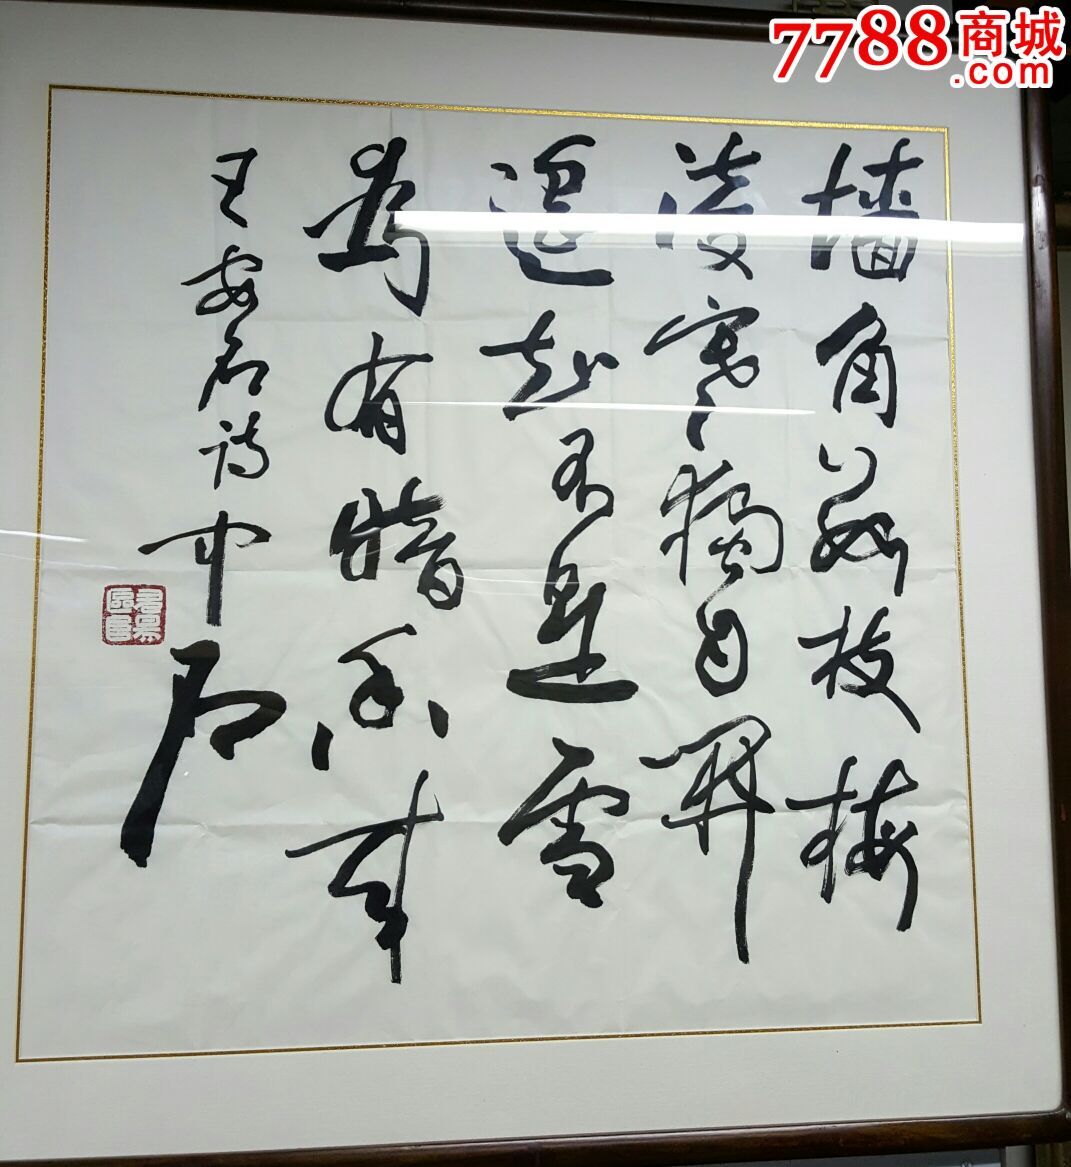 7788商城
.com
墙角數枝梅
凌寒獨自開
遥知不是雪
為有暗香來
王安石詩中石